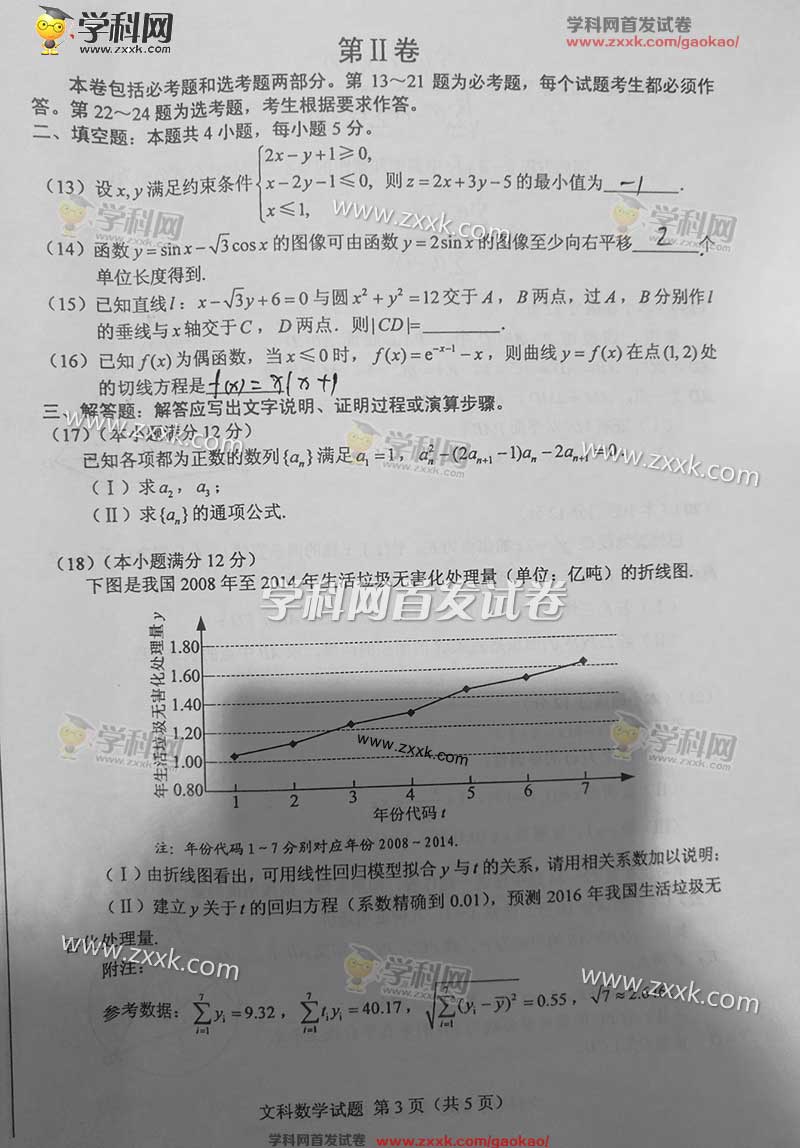 学科网
www.zxxk.com
学科网首发试卷
www.zxxk.com/gaokao/
第 II 卷
本卷包括必考题和选考题两部分。第 13～21 题为必考题，每个试题考生都必须作
答。第 22～24 题为选考题，考生根据要求作答。
二、填空题：本题共 4 小题，每小题 5 分。
（13）设 x, y 满足约束条件 {2x−y+1⩾0, x−2y−1⩽0, x⩽1, 则 z=2x+3y−5 的最小值为 −1 .
学科网
www.zxxk.com
学科网
（14）函数 y=sin x−√3cos x 的图像可由函数 y=2sin x 的图像至少向右平移 2 个
单位长度得到.
（15）已知直线 l：x−√3y+6=0 与圆 x²+y²=12 交于 A，B 两点，过 A，B 分别作 l
的垂线与 x 轴交于 C，D 两点．则|CD|=________.
（16）已知 f(x) 为偶函数，当 x⩽0 时，f(x)=e^(−x−1)−x，则曲线 y=f(x) 在点(1,2)处
的切线方程是 f(x)=x(x+1
三、解答题：解答应写出文字说明、证明过程或演算步骤。
（17）(本小题满分 12 分）
学科网
www.zxxk.com
已知各项都为正数的数列{aₙ}满足 a₁=1，aₙ²−(2aₙ₊₁−1)aₙ−2aₙ₊₁=0.
（Ⅰ）求 a₂，a₃；
（Ⅱ）求{aₙ}的通项公式.
（18）(本小题满分 12 分）
下图是我国 2008 年至 2014 年生活垃圾无害化处理量（单位：亿吨）的折线图.
学科网首发试卷
年生活垃圾无害化处理量 y
1.80
1.60
1.40
1.20
1.00
0.80
1 2 3 4 5 6 7
年份代码 t
学科网
www.zxxk.com
学科网
www.zxxk.com
注：年份代码 1～7 分别对应年份 2008～2014.
（Ⅰ）由折线图看出，可用线性回归模型拟合 y 与 t 的关系，请用相关系数加以说明；
（Ⅱ）建立 y 关于 t 的回归方程（系数精确到 0.01），预测 2016 年我国生活垃圾无
化处理量.
附注：
学科网
www.zxxk.com
参考数据：∑(i=1→7) yᵢ=9.32，∑(i=1→7) tᵢyᵢ=40.17，√(∑(i=1→7)(yᵢ−ȳ)²)=0.55，√7≈2.646.
文科数学试题 第 3 页（共 5 页）
学科网首发试卷 www.zxxk.com/gaokao/